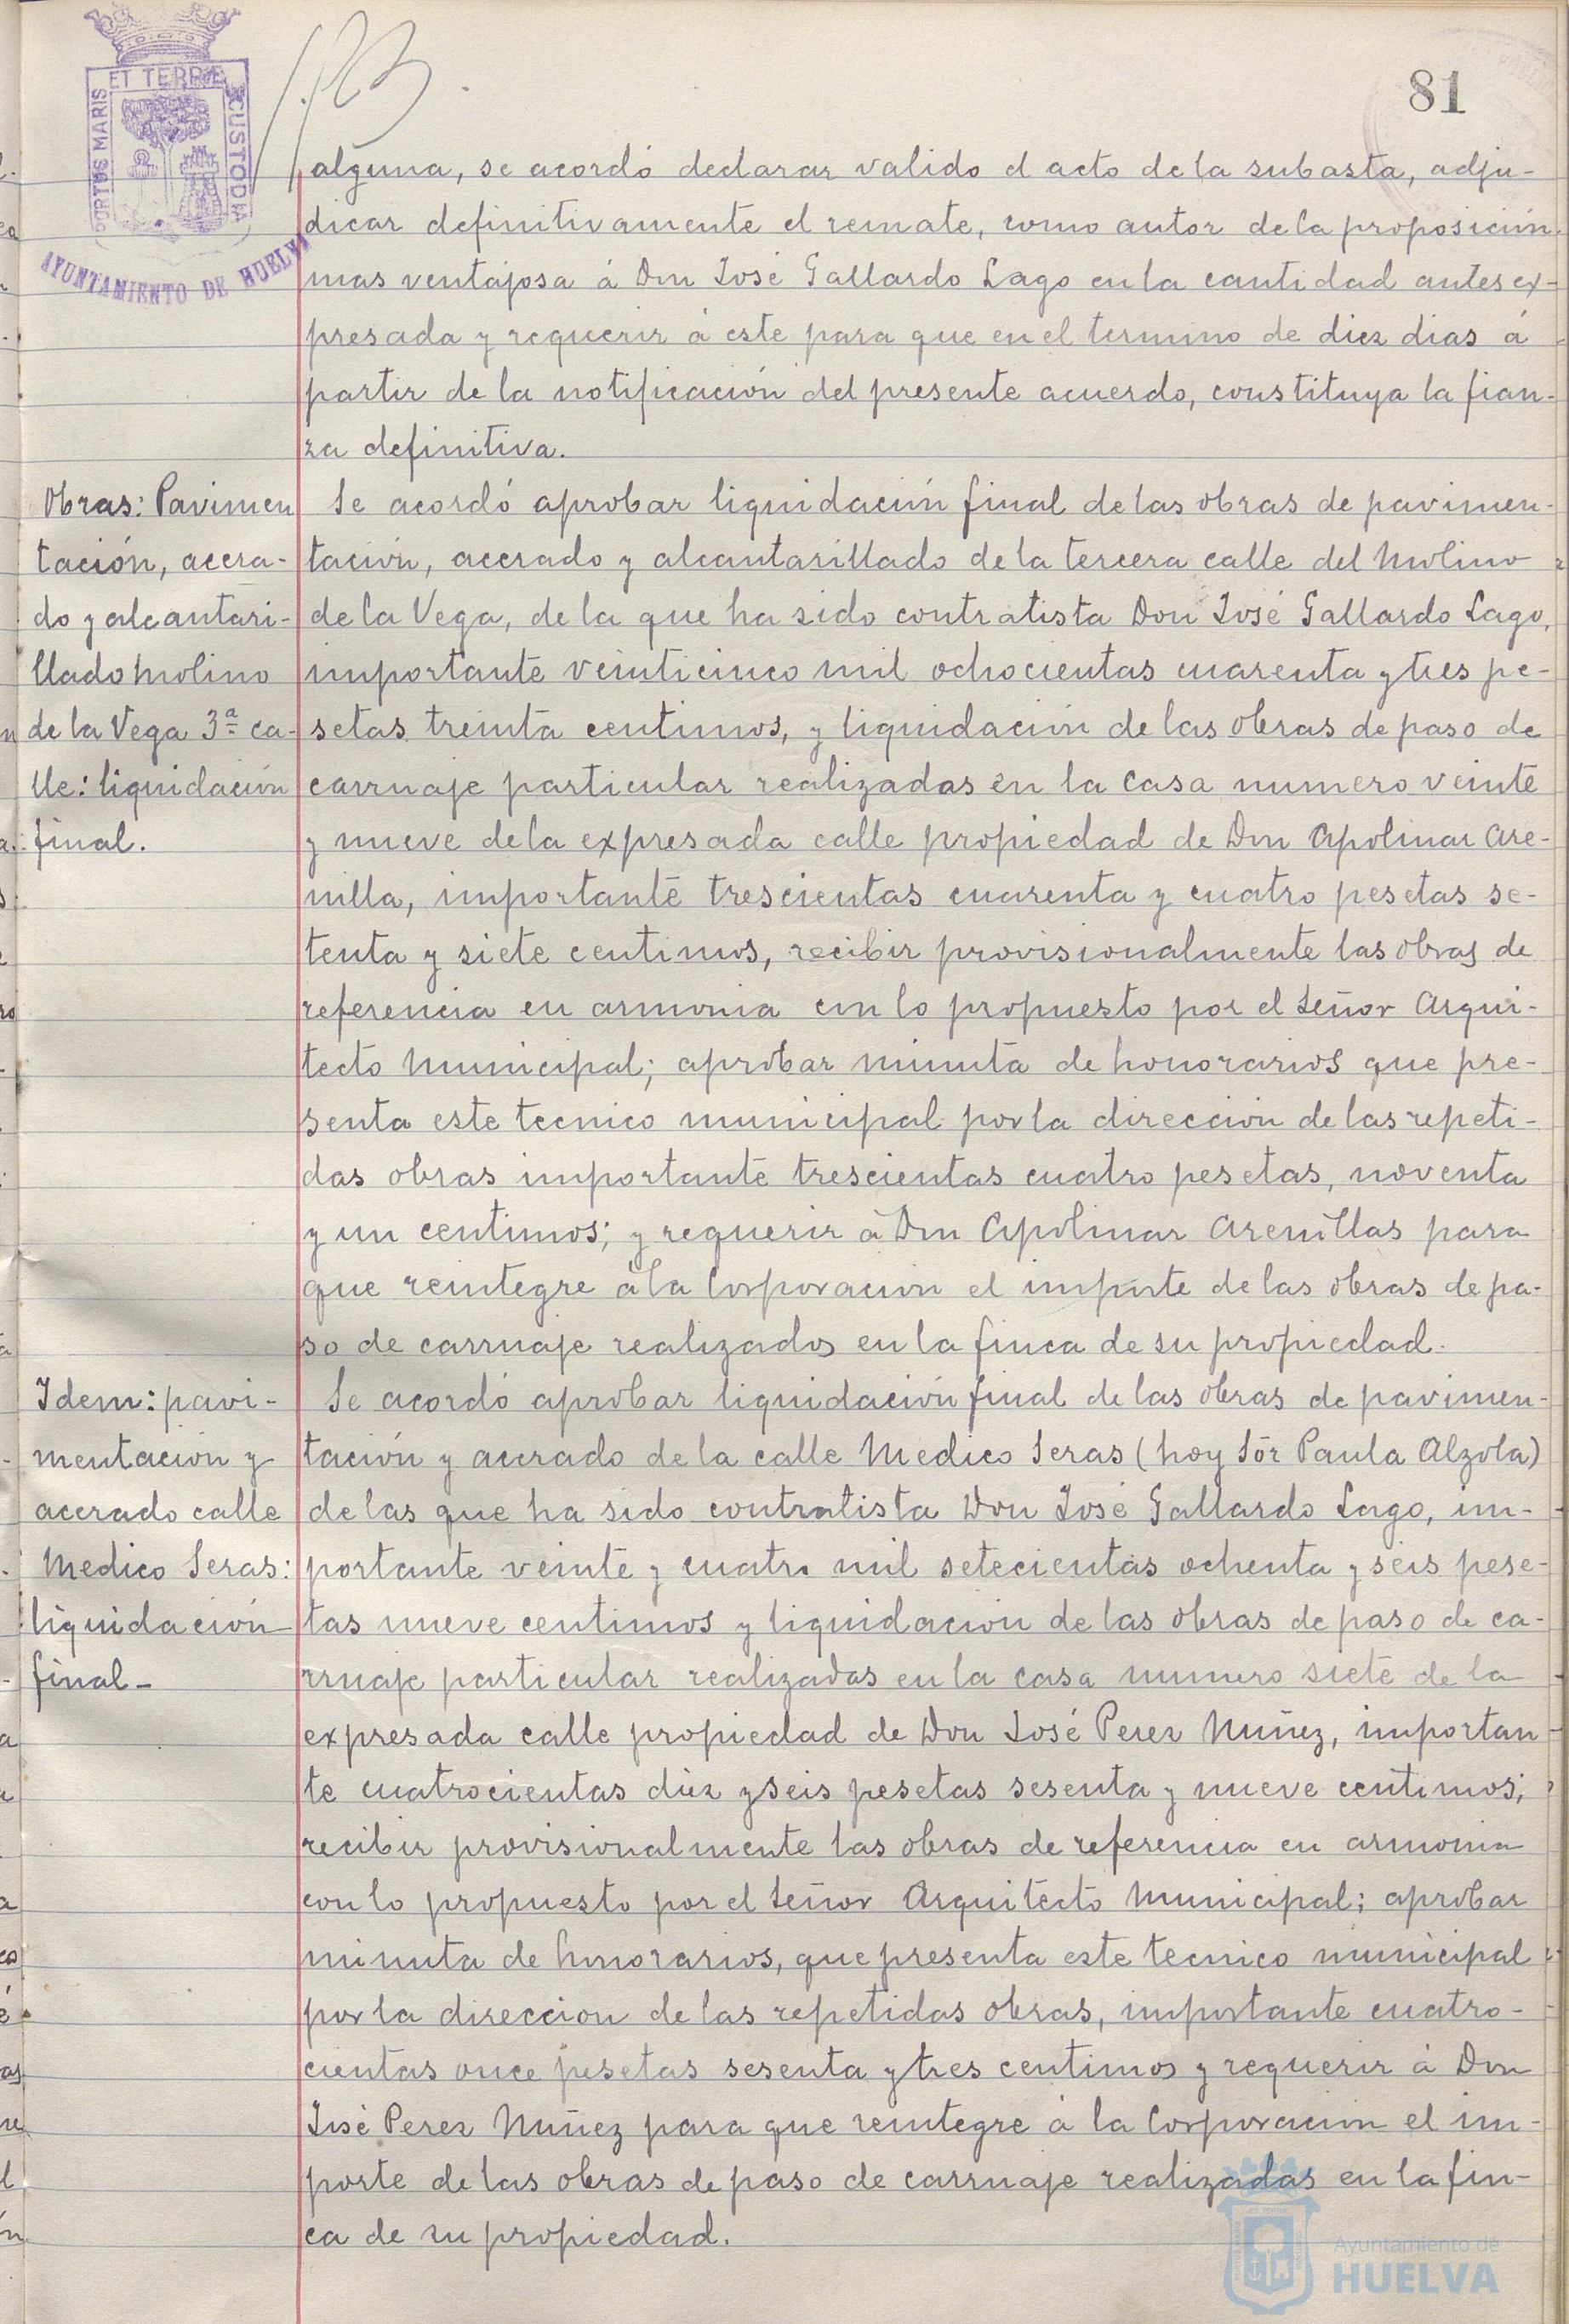 81
PORTUS MARIS ET TERRÆ CUSTODIA
AYUNTAMIENTO DE HUELVA
alguna, se acordó declarar valido el acto de la subasta, adju-
dicar definitivamente el remate, como autor de la proposición
mas ventajosa á Don José Gallardo Lago en la cantidad antes ex-
presada y requerir á este para que en el termino de diez dias á
partir de la notificación del presente acuerdo, constituya la fian-
za definitiva.
Obras: Pavimen
tación, acera-
do y alcantari-
llado Molino
de la Vega 3ª ca-
lle: liquidación
final.
Se acordó aprobar liquidación final de las obras de pavimen-
tación, acerado y alcantarillado de la tercera calle del Molino
de la Vega, de la que ha sido contratista Don José Gallardo Lago,
importante veinticinco mil ochocientas cuarenta y tres pe-
setas treinta centimos, y liquidación de las obras de paso de
carruaje particular realizadas en la casa numero veinte
y nueve de la expresada calle propiedad de Don Apolinar Are-
nilla, importante trescientas cuarenta y cuatro pesetas se-
tenta y siete centimos, recibir provisionalmente las obras de
referencia en armonia con lo propuesto por el Señor Arqui-
tecto Municipal; aprobar minuta de honorarios que pre-
senta este tecnico municipal por la dirección de las repeti-
das obras importante trescientas cuatro pesetas, noventa
y un centimos; y requerir á Don Apolinar Arenillas para
que reintegre á la Corporación el importe de las obras de pa-
so de carruaje realizados en la finca de su propiedad.
Idem: pavi-
mentación y
acerado calle
Medico Seras:
liquidación
final-
Se acordó aprobar liquidación final de las obras de pavimen-
tación y acerado de la calle Medico Seras (hoy Sor Paula Alzola)
de las que ha sido contratista Don José Gallardo Lago, im-
portante veinte y cuatro mil setecientas ochenta y seis pese-
tas nueve centimos y liquidación de las obras de paso de ca-
rruaje particular realizadas en la casa numero siete de la
expresada calle propiedad de Don José Perez Nuñez, importan
te cuatrocientas diez y seis pesetas sesenta y nueve centimos;
recibir provisionalmente las obras de referencia en armonia
con lo propuesto por el Señor Arquitecto Municipal; aprobar
minuta de honorarios, que presenta este tecnico municipal
por la direccion de las repetidas obras, importante cuatro-
cientas once pesetas sesenta y tres centimos y requerir á Don
José Perez Nuñez para que reintegre á la Corporación el im-
porte de las obras de paso de carruaje realizadas en la fin-
ca de su propiedad.
Ayuntamiento de
HUELVA